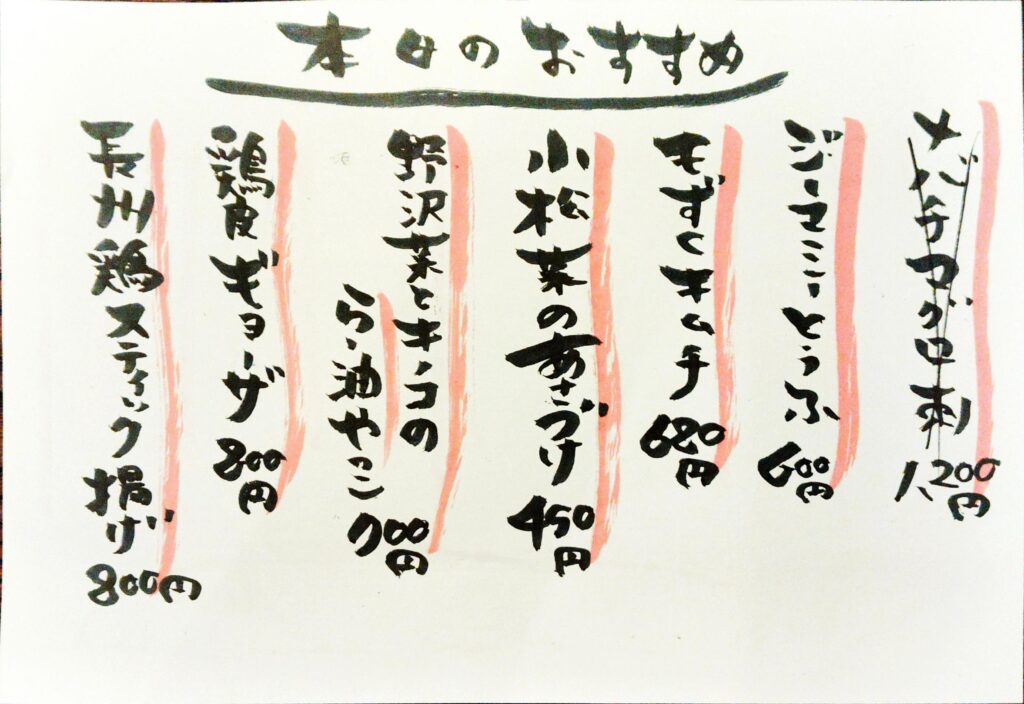 本日のおすすめ
メバチマグロ刺 1,200円
ジーマミーとうふ 600円
もずくキムチ 680円
小松菜のあさづけ 450円
野沢菜とキノコの
らー油やっこ 700円
鶏皮ギョーザ 800円
長州鶏スティック揚げ 800円